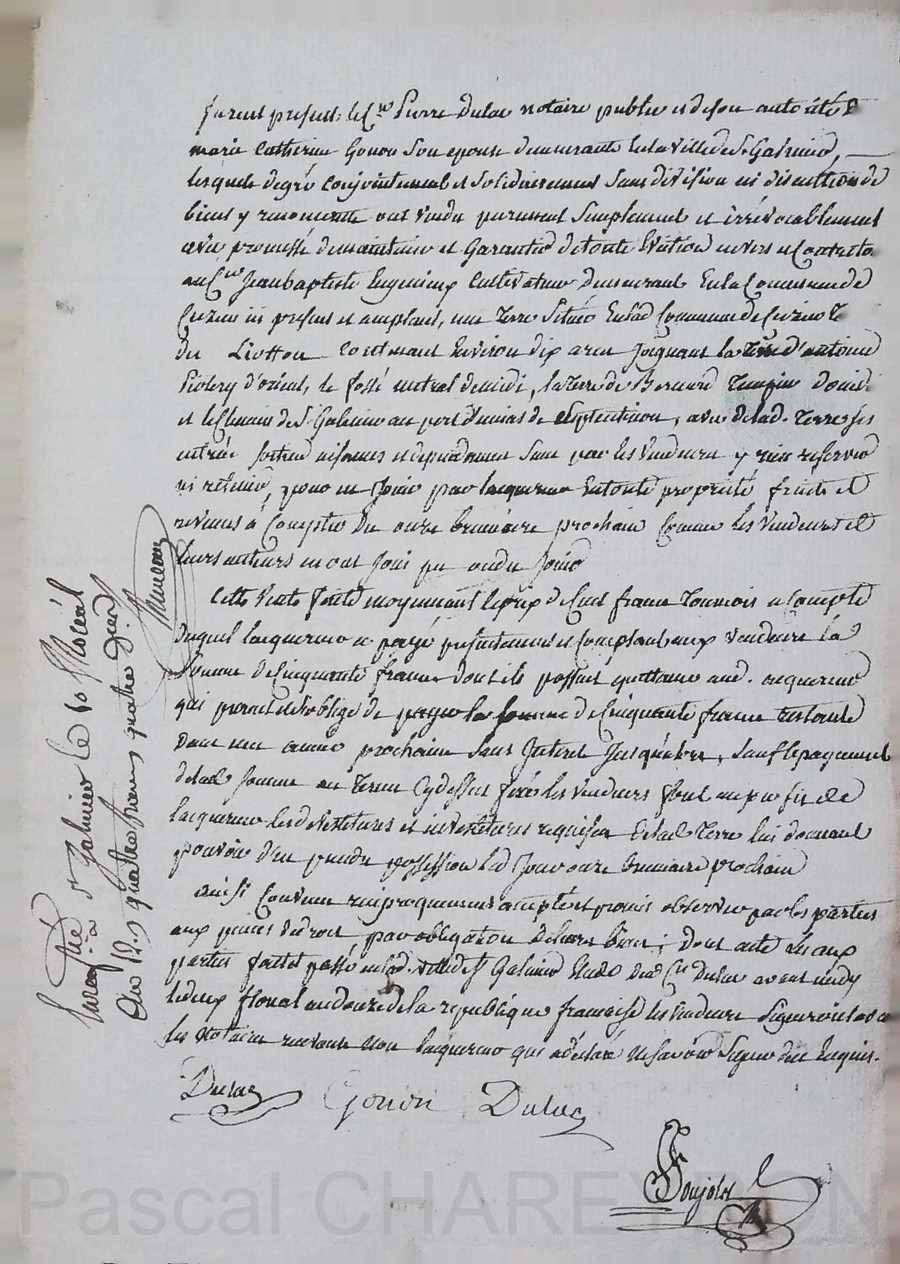 furent présents le C.en Pierre Dulac notaire public et de son autorité
marie Catherine Gonon Son epouse demeurante En la Ville de St Galmier,
lesquels de gré Conjointement et Solidairement Sans division ni discution de
biens y renoncante ont vendu purement Simplement et irrévocablement
avec promesse de maintenir et Garantir de toute Eviction envers et Contre tous
au C.en Jean baptiste Cultivateur Demeurant En la Commune de
Cuzieu ici présent et acceptant, une Terre Située En lad Commune de Cuzieu
du Liotton Contenant Environ dix ares Joignant la Terre d'antoine
d'orient, le fossé mitral de midi, la terre de Bernard
et le Chemin de St Galmier au port de Septentrion, avec de lad. Terre ses
entrées Sorties aisances et dependances Sans par les Vendeurs y rien reserver
ni retenir, pour en Jouir par lacquereur En toute propriété fruits et
revenus à Compter du onze brumaire prochain Comme les Vendeurs et
leurs auteurs en ont Joui pu ou du Jouir
Cette Vente faite moyennant le prix de Cent francs Tournois a Compte
duquel lacquereur a payé presentement et Comptant aux Vendeurs la
Somme de Cinquante francs dont ils passent quittance aud. acquereur
qui promet et s'oblige de payer la Somme de Cinquante francs restante
dans une année prochaine Sans Interet Jusqu'alors, Sauf le payement
de lad Somme au Terme Cy dessus fixé les Vendeurs font au profit de
lacquereur les devestitures et investitures requises de lad Terre lui donnant
pouvoir d'en prendre possession led Jour onze brumaire prochain
ainsi Convenu reciproquement accepté et promis observer par les parties
aux peines de droit par obligation de leurs biens; Dont acte
parties fait et passé en lad. Ville de St Galmier Etude dud C.en Dulac avant midy
le deux floreal an douze de la republique française les Vendeurs Signeront avec
les Notaires non lacquereur qui a déclaré ne Savoir Signer de ce Enquis.
Dulac Gonon Dulac
Soujolos
Enregistré à St Galmier le 10 floréal
An 12 quatre francs quatre
Pascal CHAREYRON